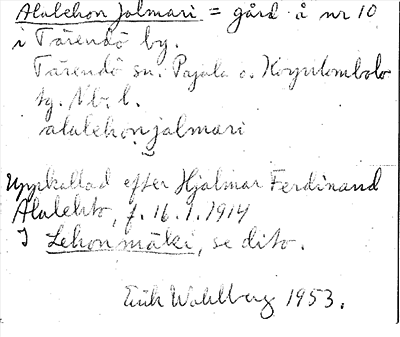 Alalehon Jalmari = gård å nr 10
i Tärendö by.
Tärendö sn. Pajala o. Korpilombolo
tg. Nb. l.
alalehon jalmari
Uppkallad efter Hjalmar Ferdinand
Alalehto, f. 16.1.1914
I Lehonmäki, se dito.
Erik Wahlberg 1953.